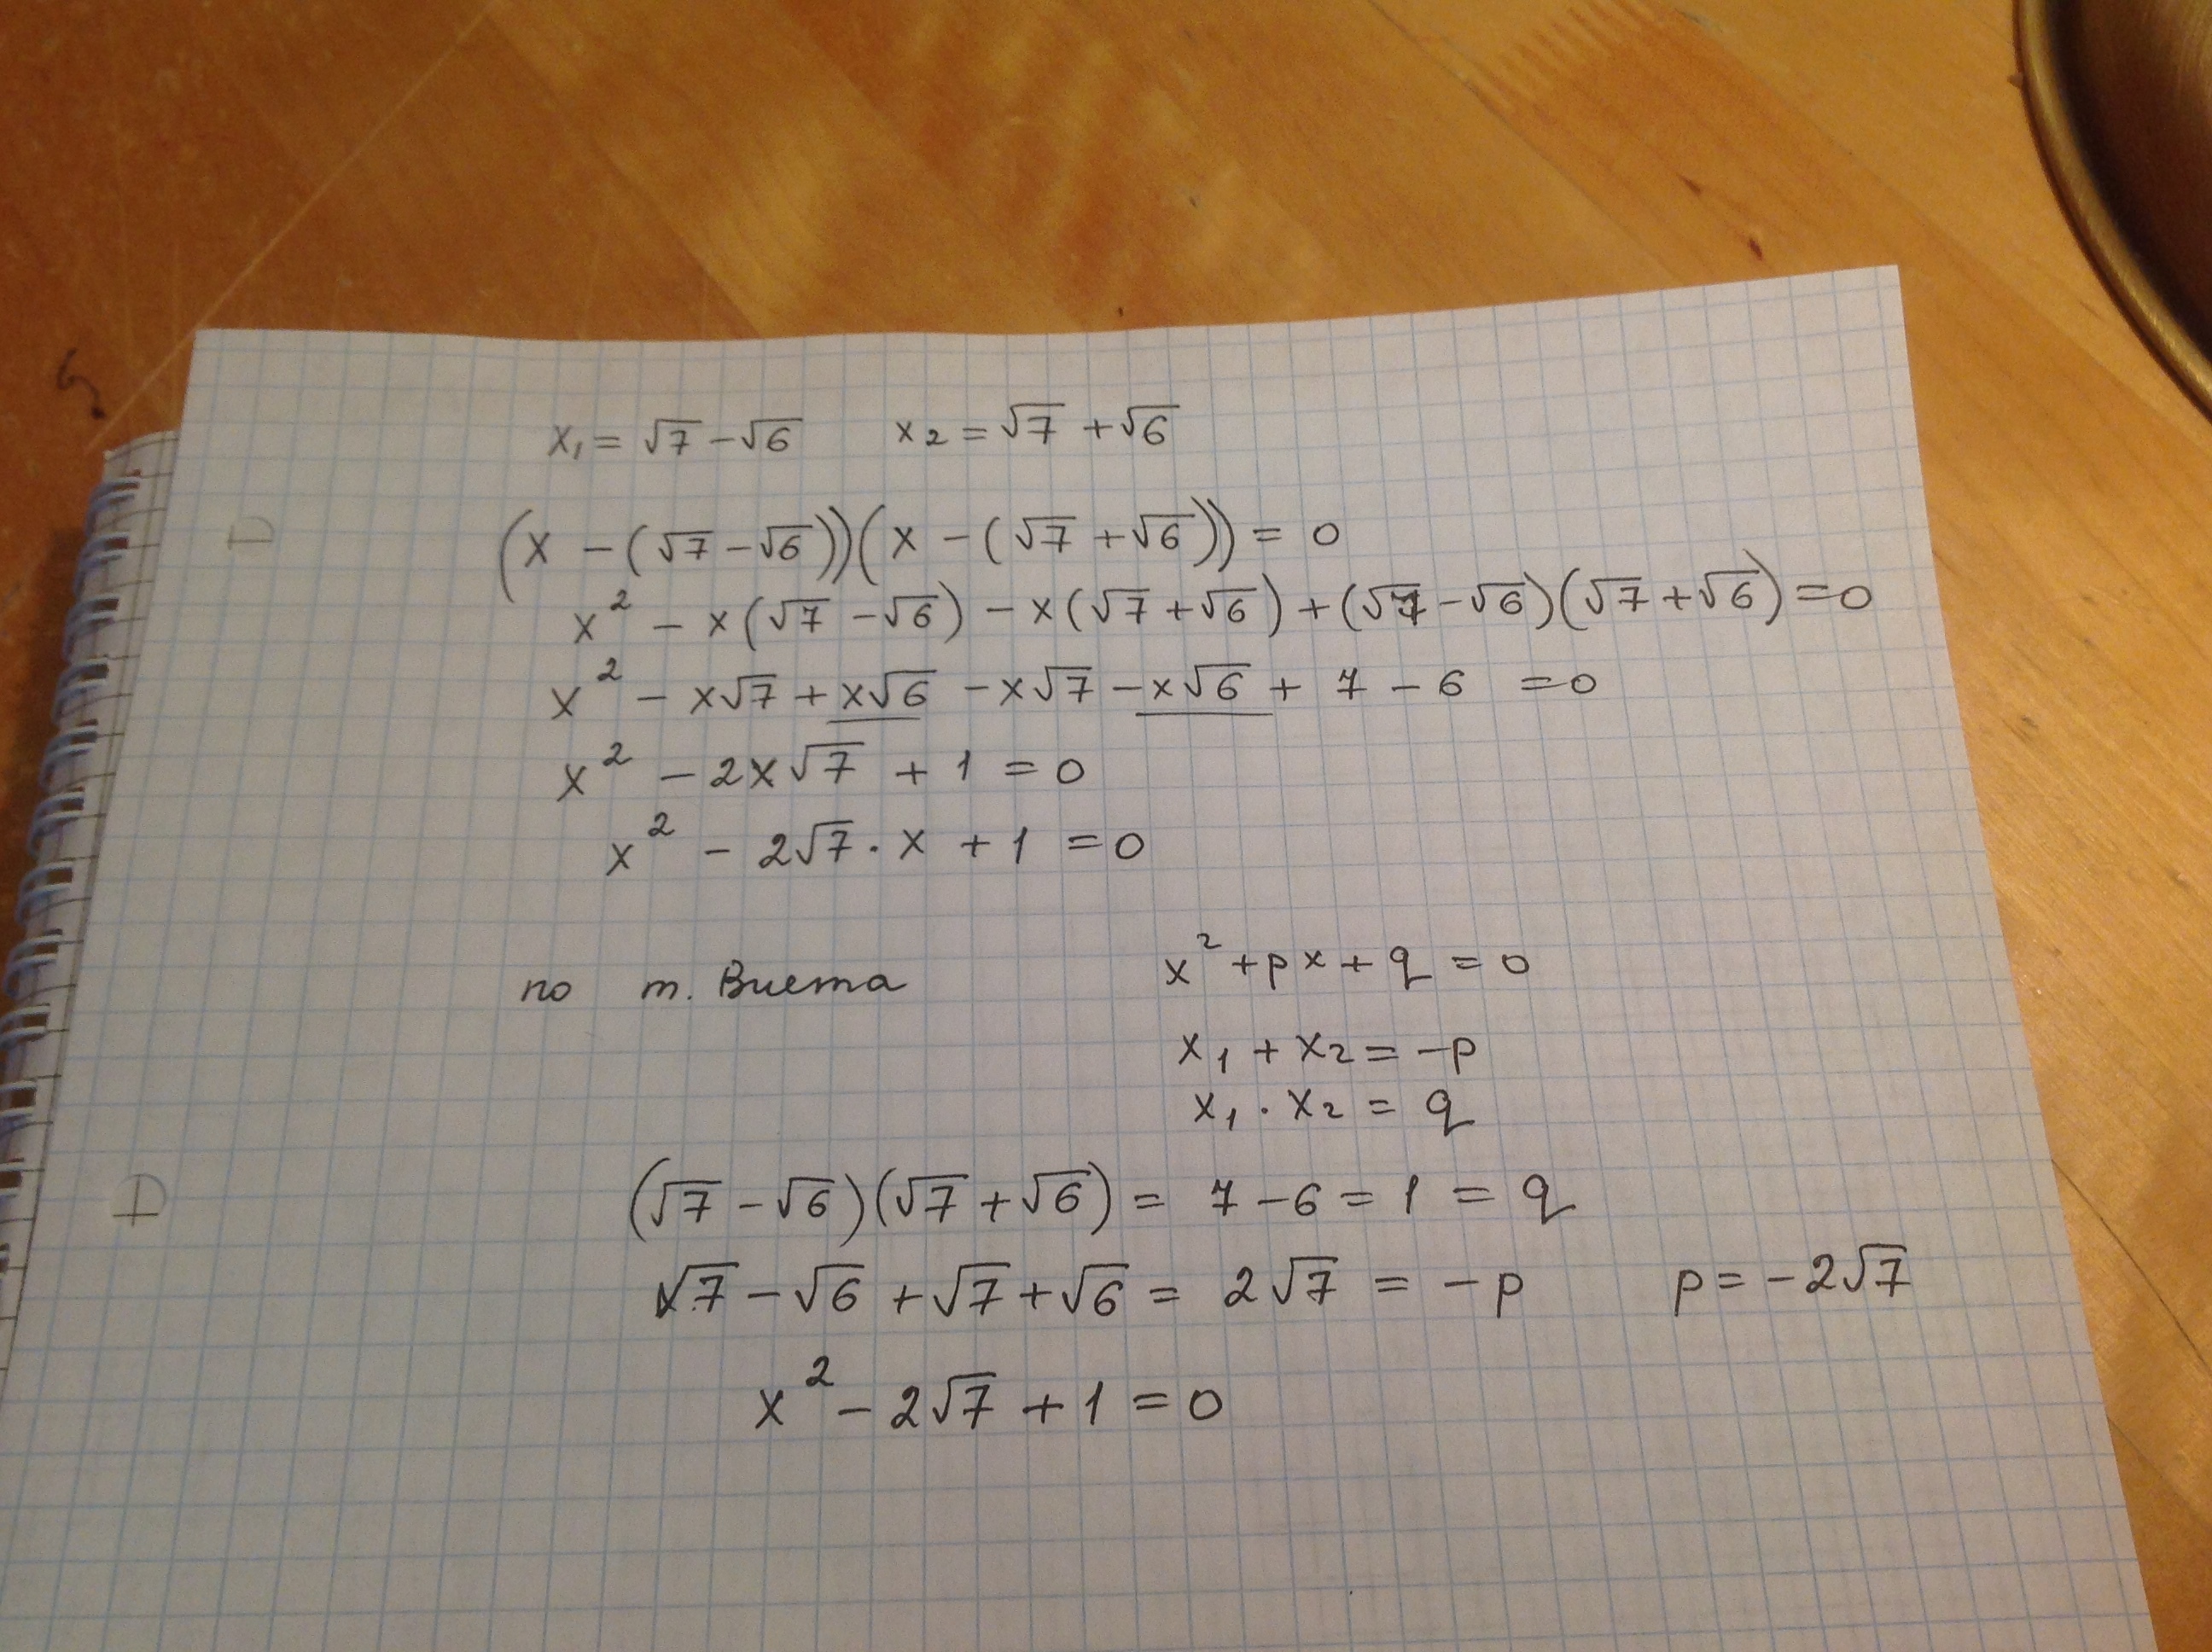 x₁ = √7 − √6   x₂ = √7 + √6
(x − (√7 − √6))(x − (√7 + √6)) = 0
x² − x(√7 − √6) − x(√7 + √6) + (√7 − √6)(√7 + √6) = 0
x² − x√7 + x√6 − x√7 − x√6 + 7 − 6 = 0
x² − 2x√7 + 1 = 0
x² − 2√7 · x + 1 = 0
по т. Виета   x² + px + q = 0
x₁ + x₂ = −p
x₁ · x₂ = q
(√7 − √6)(√7 + √6) = 7 − 6 = 1 = q
√7 − √6 + √7 + √6 = 2√7 = −p   p = −2√7
x² − 2√7 + 1 = 0